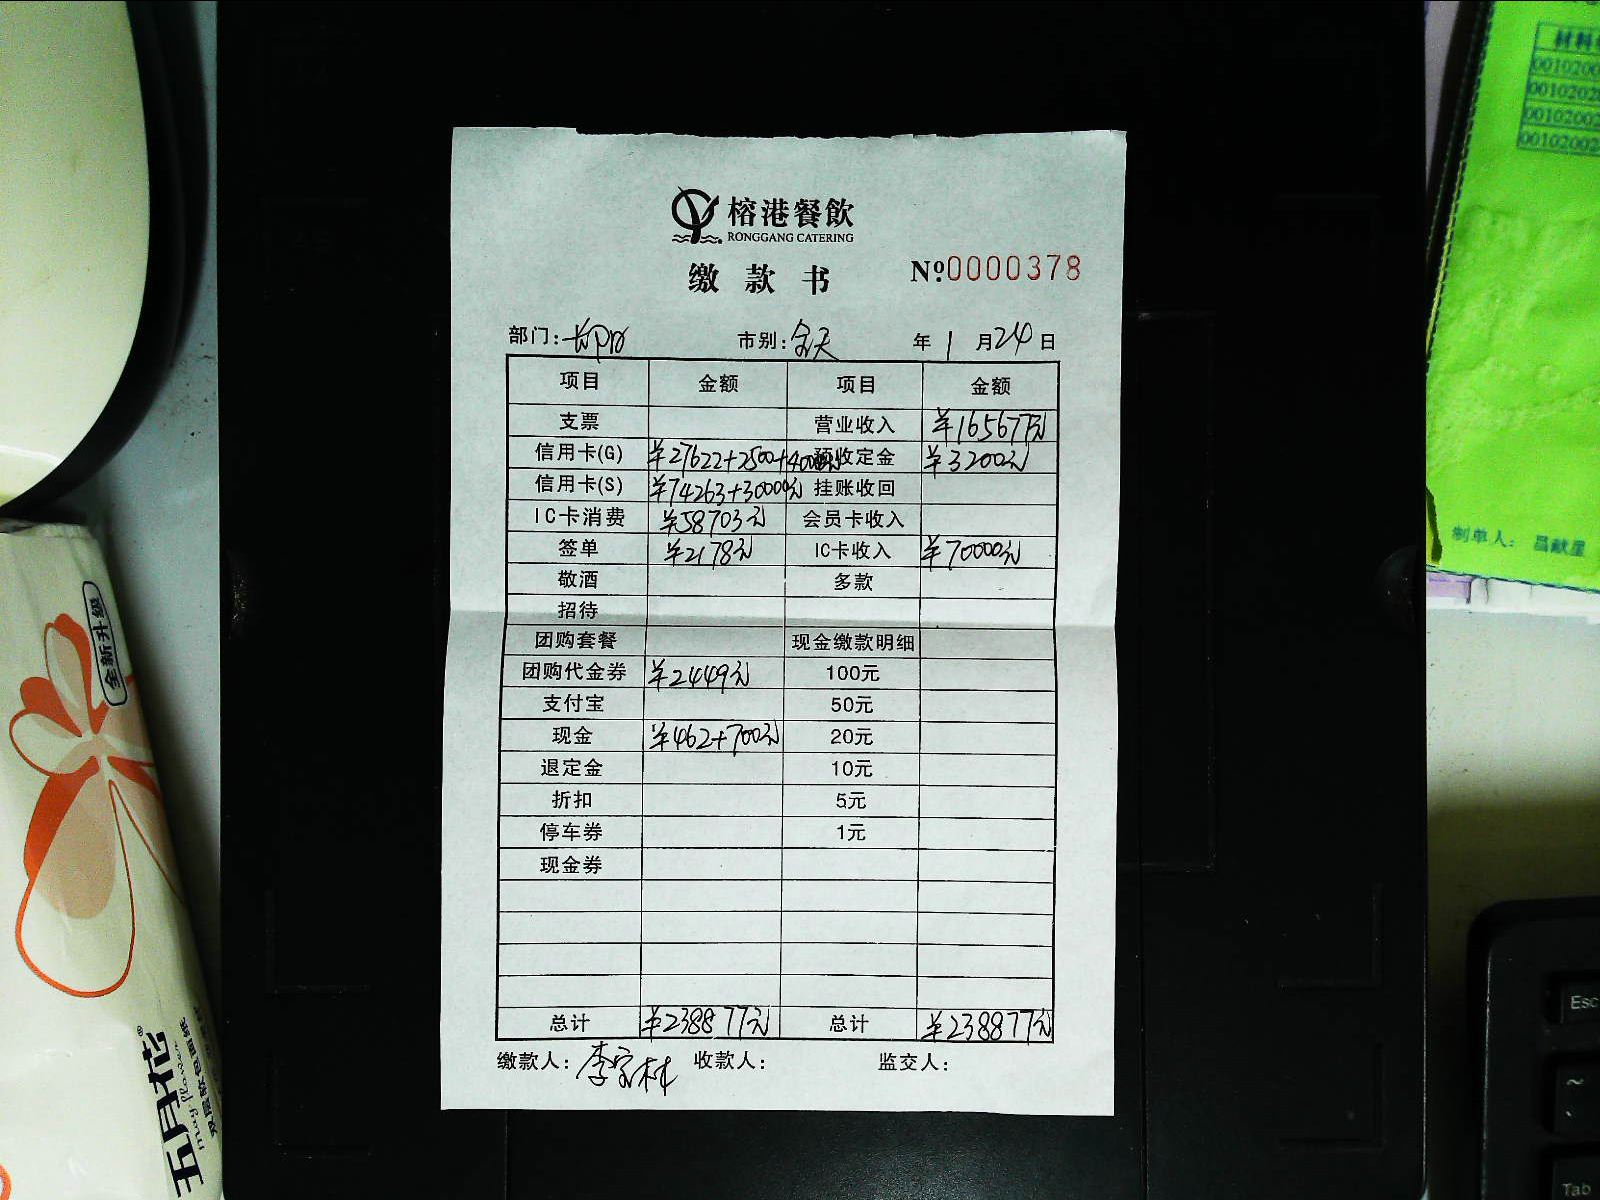 榕港餐飲
RONGGANG CATERING
缴款书
№0000378
部门: 市别:全天 年1月24日
项目 金额 项目 金额
支票 营业收入 ¥165677元
信用卡(G) ¥27622+2500+40000元 预收定金 ¥3200元
信用卡(S) ¥74263+30000元 挂账收回
IC卡消费 ¥58703元 会员卡收入
签单 ¥2178元 IC卡收入 ¥70000元
敬酒 多款
招待
团购套餐 现金缴款明细
团购代金券 ¥2449元 100元
支付宝 50元
现金 ¥462+700元 20元
退定金 10元
折扣 5元
停车券 1元
现金券
总计 ¥238877元 总计 ¥238877元
缴款人: 收款人: 监交人:
全新升级
五月花
材料
0010200
0010202
0010200
0010200
制单人:
Esc
~
Tab